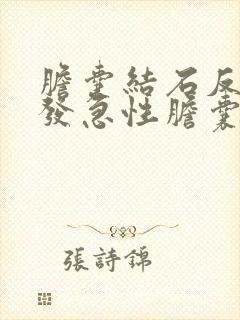 膽囊結石反
發急性膽囊
張詩錦